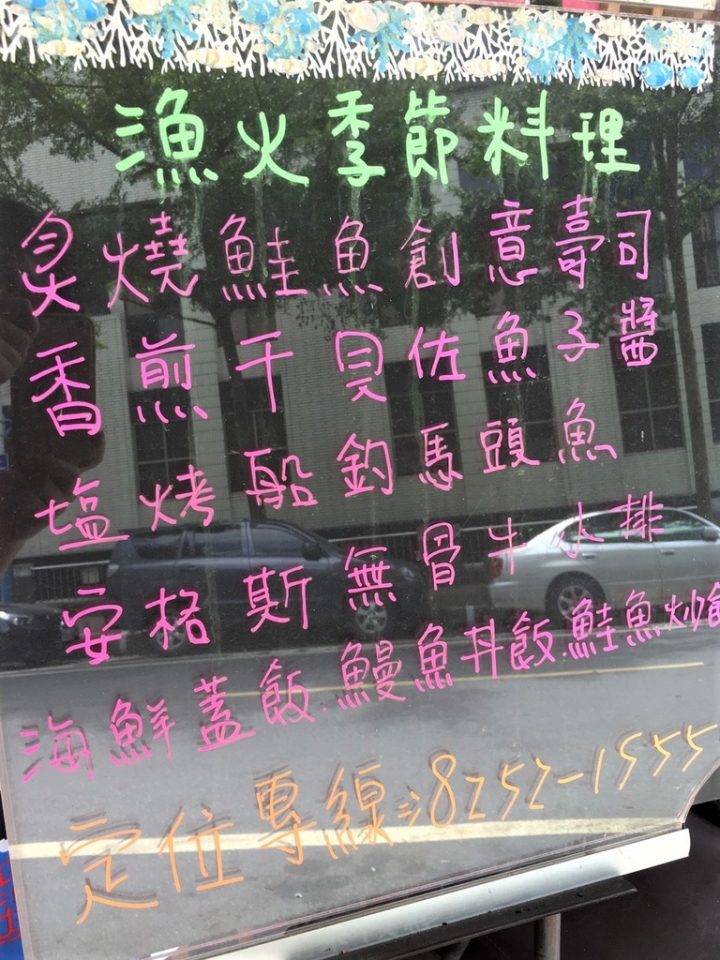 漁火季節料理
炙燒鮭魚創意壽司
香煎干貝佐魚子醬
塩烤船釣馬頭魚
安格斯無骨牛小排
海鮮蓋飯.鰻魚丼飯鮭魚炒飯
定位專線:8252-1555